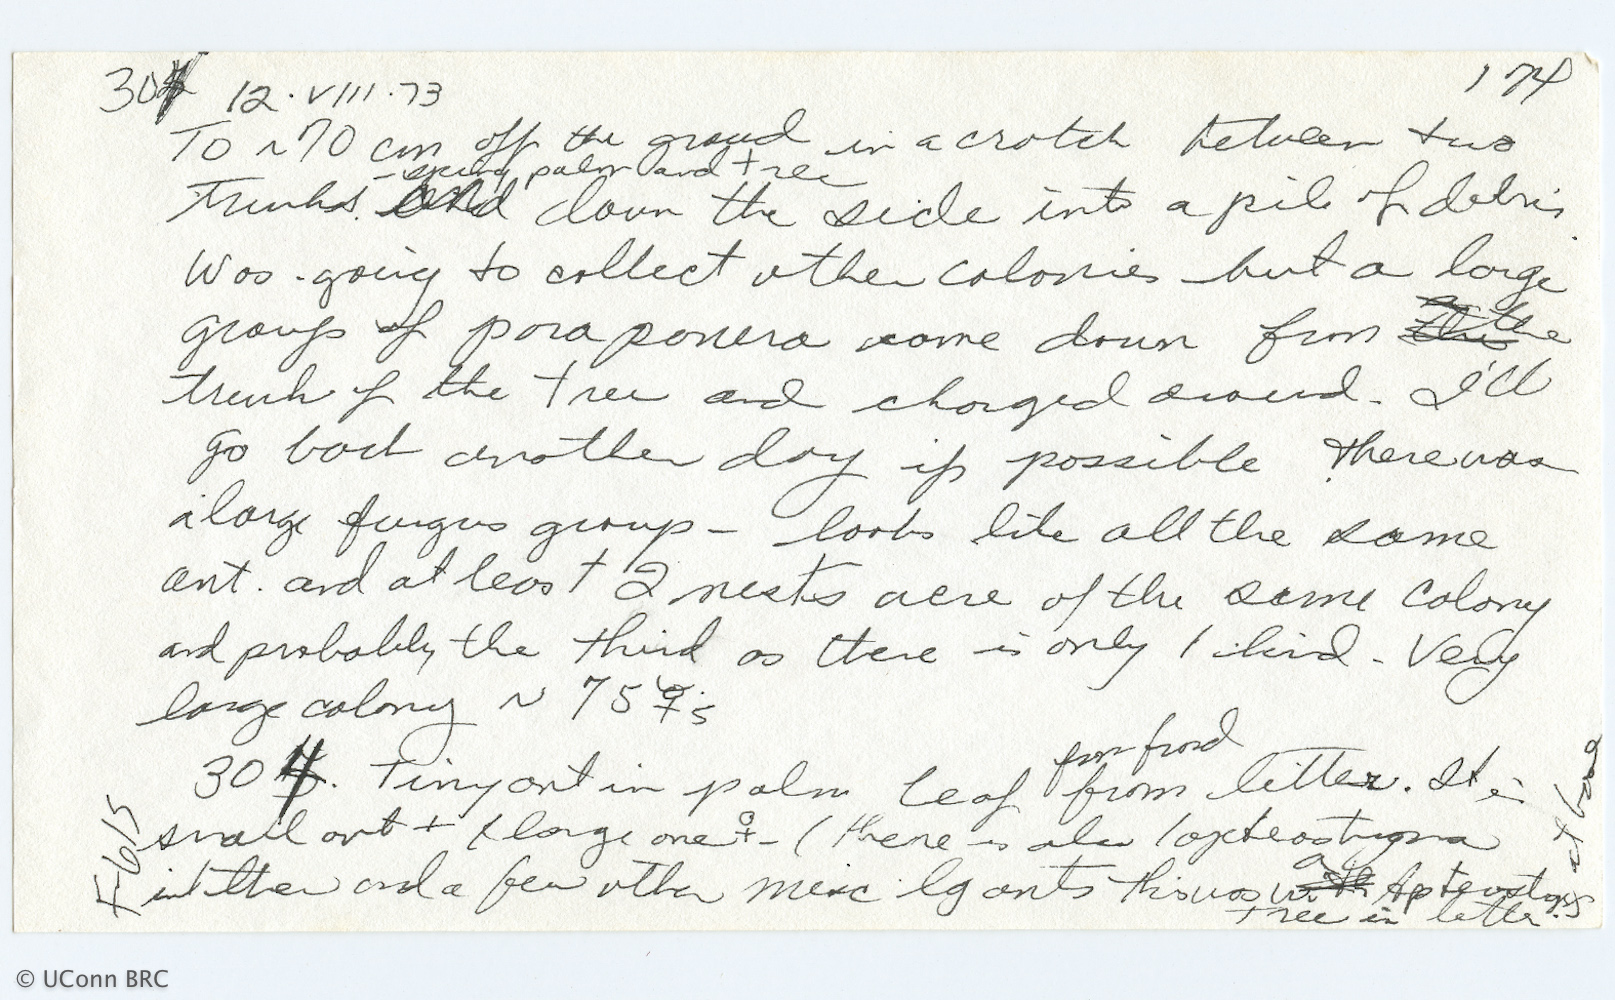 304 12.VIII.73 174
To ~ 70 cm off the ground in a crotch between two
trunks. - spiny palm and tree
down the side into a pile of debris.
Was going to collect other colonies but a large
group of paraponera came down from the
trunk of the tree and charged around. I'll
go back another day if possible There was
a large fungus group - looks like all the same
ant. and at least 2 nests were of the same colony
and probably the third as there is only 1 kind. Very
large colony ~ 75 ☿s
304. Tiny ant in palm leaf from litter. It is
from frond
small ant + 1 large one ♀ - (there is also 1 apterostigma
in there and a few other misc lg ants this was
tree in litter.
at base
F615
© UConn BRC